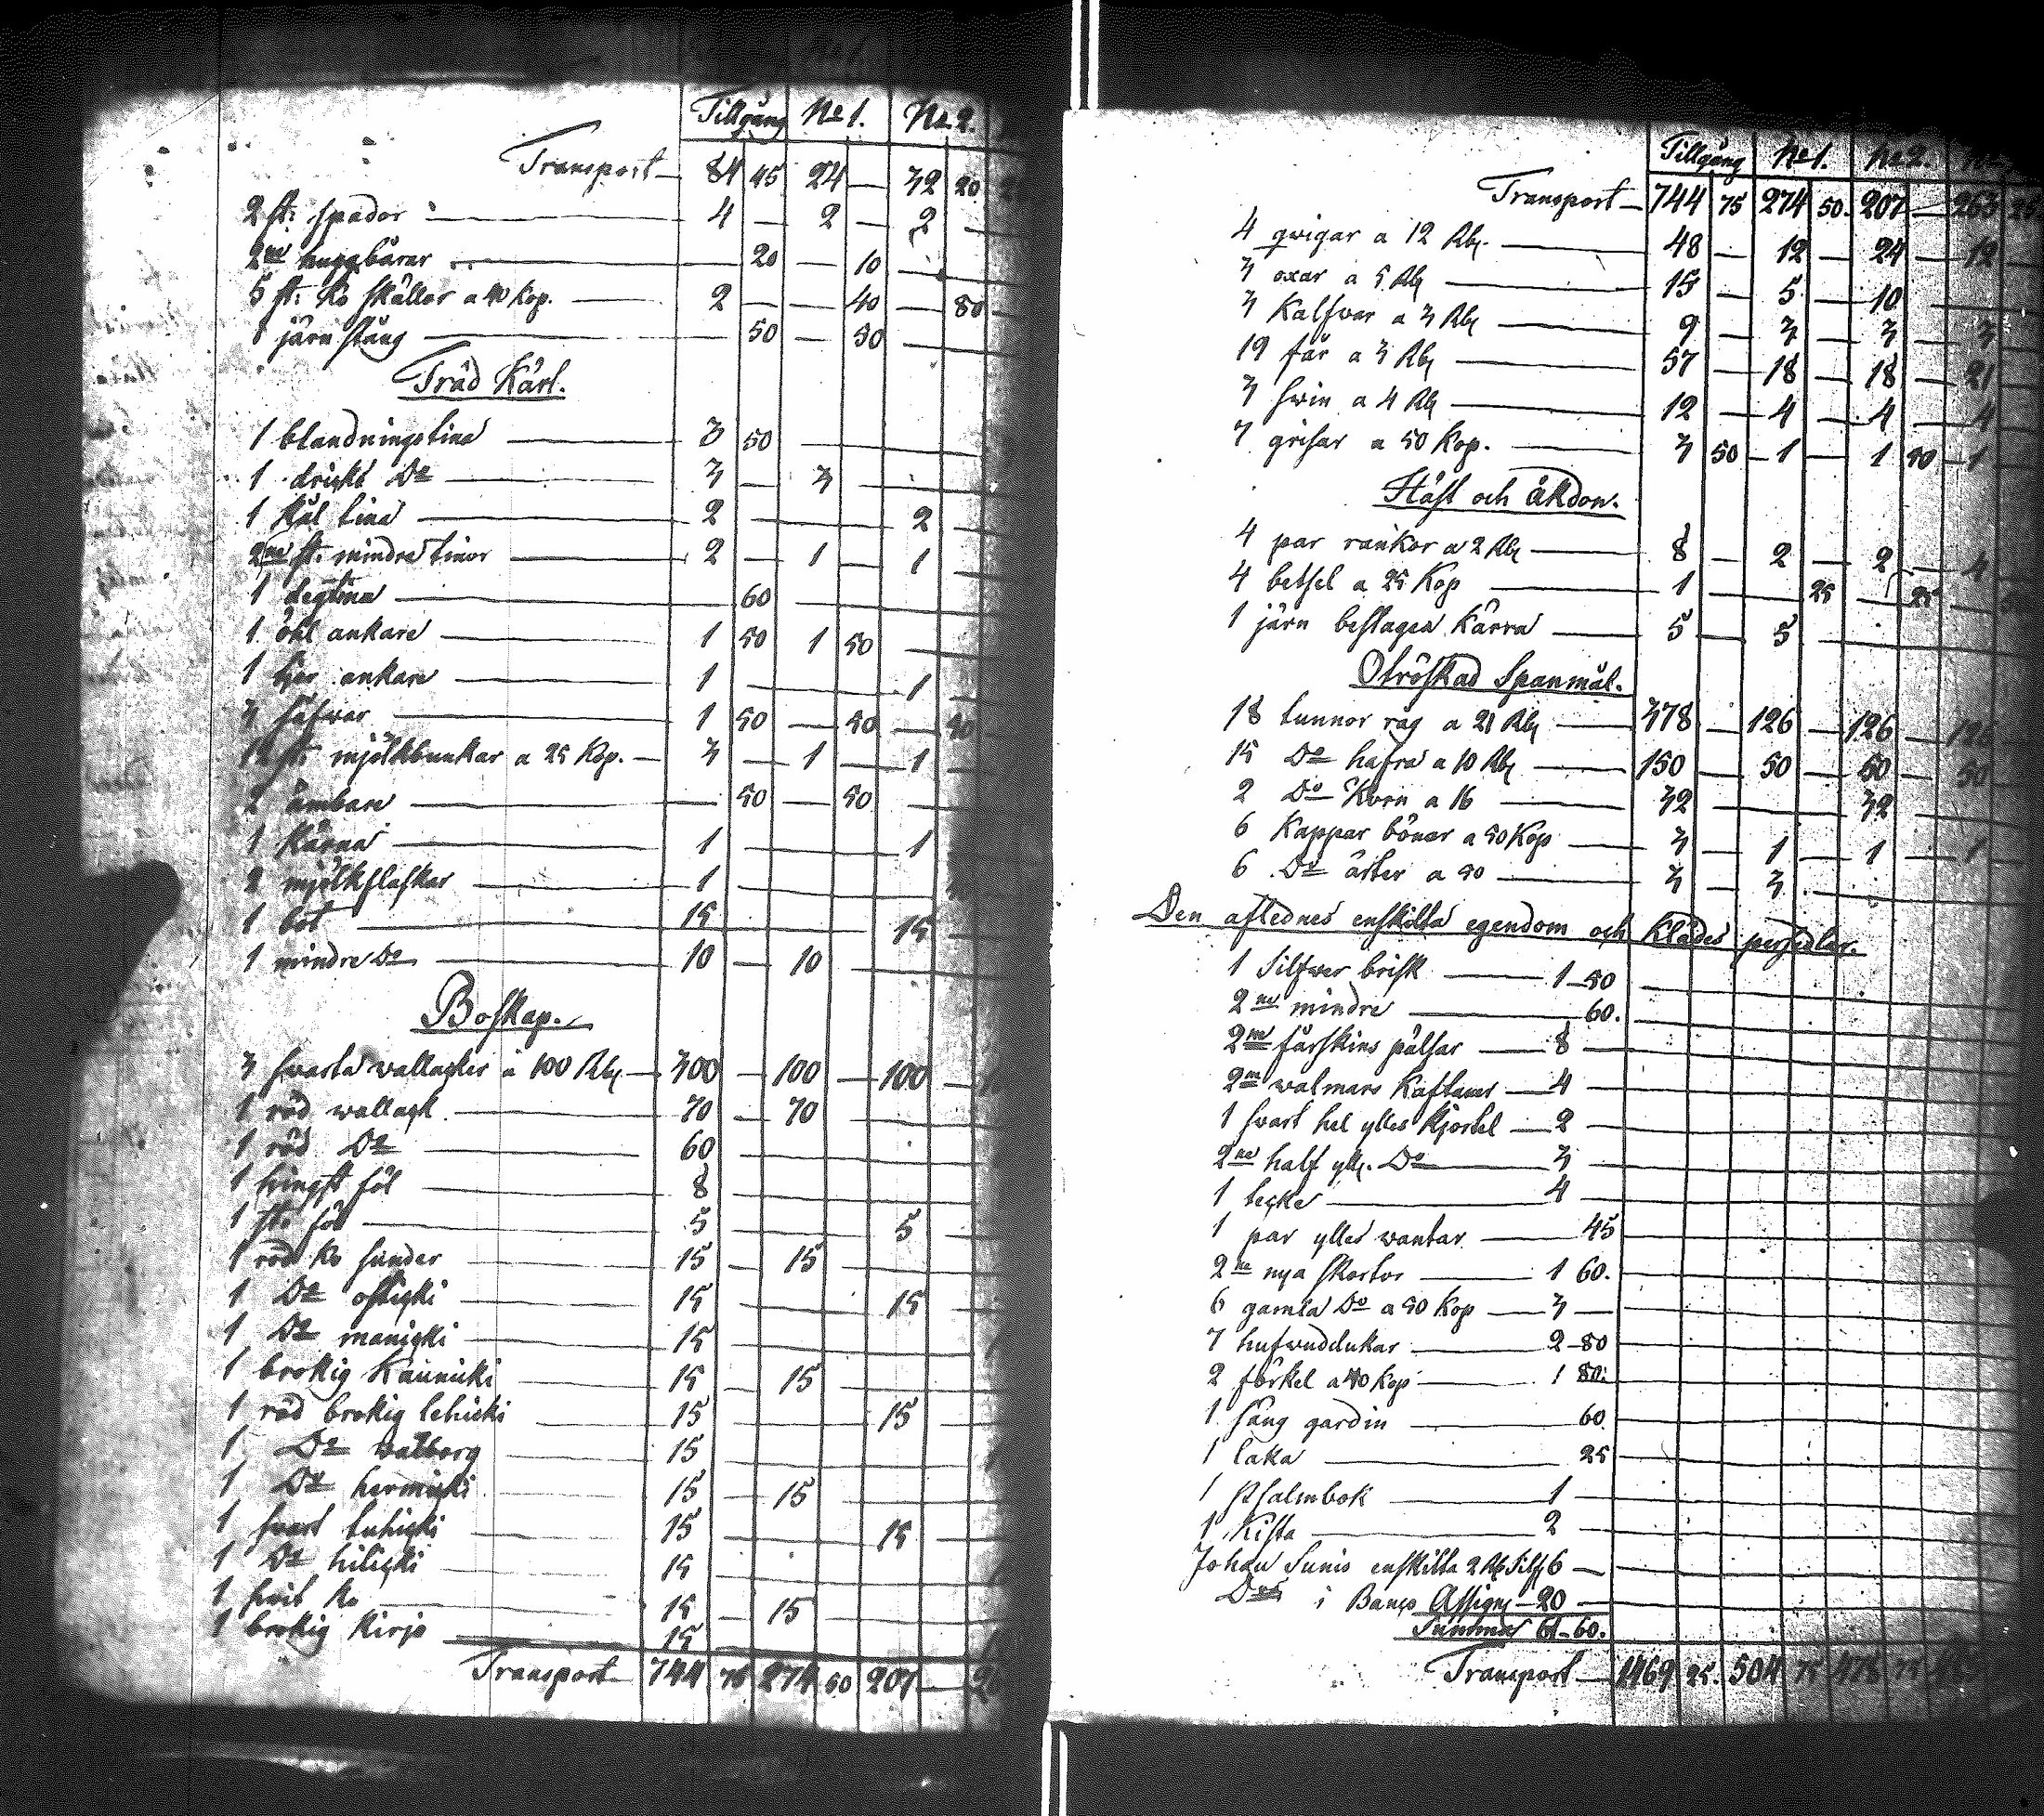 Tillgång No 1. No 2.
Transport 84 45 24 — 32 20
2 st. spador 4 — 2 — 2
2ne huggbårar 20 — 10
5 st. ko skällor a 40 Kop. 2 — — 40 — 80
1 järn stång 50 — 50
Träd Kärl.
1 blandningstina 3 50
1 dricks Do 3 — 3
1 kål tina 2 — 2
2ne st. mindre tinor 2 — 1 — 1
1 degtina 60
1 öhl ankare 1 50 1 50
1 ankare 1 — 1
3 såfwar 1 50 — 50 — 50
12 st. mjölkbunkar a 25 Kop. 3 — 1 — 1
2 ämbare — 50 — 50
1 kärna 1 — 1
2 mjölkflaskor 1
1 bot 15 — 15
1 mindre Do 10 — 10
Boskap.
3 swarta wallacker a 100 Rb 300 — 100 — 100
1 röd wallack 70 — 70
1 röd Do 60
1 hingst föl 8
1 sto föl 5 — 5
1 röd ko sunder 15 — 15
1 Do osticki 15 — 15
1 Do manicki 15
1 brokig Kaunicki 15 — 15
1 röd brokig lehicki 15 — 15
1 Do walborg 15
1 Do hermicki 15 — 15
1 swart luhicki 15 — 15
1 Do hilicki 15
1 hwit ko 15 — 15
1 brokig kirjo 15
Transport 744 75 274 50 207 —
Tillgång No 1. No 2.
Transport 744 75 274 50 207 — 263
4 qwigar a 12 Rb. 48 — 12 — 24 — 12
3 oxar a 5 Rb 15 — 5 — 10
3 Kalfwar a 3 Rb 9 — 3 — 3 — 3
19 får a 3 Rb 57 — 18 — 18 — 21
3 swin a 4 Rb 12 — 4 — 4 — 4
7 grisar a 50 Kop. 3 50 — 1 — 1 50 — 1
Häst och åkdon.
4 par rankor a 2 Rb 8 — 2 — 2 — 4
4 betsel a 25 Kop 1 — 25 — 25
1 järn beslagen Kärra 5 — 5
Otröskad Spanmål.
18 tunnor råg a 21 Rb 378 — 126 — 126 — 126
15 Do hafra a 10 Rb 150 — 50 — 50 — 50
2 Do Korn a 16 32 — 32
6 Kappar bönor a 50 Kop 3 — 1 — 1 — 1
6 Do ärter a 50 3 — 3
Den aflednes enskilta egendom och Klädes persedlar.
1 Silfwer brisk 1 — 50
2ne mindre 60.
2ne fårskins pälsar 8 —
2ne walmars Kaftaner 4 —
1 swart hel ylles Kjortel 2 —
2ne half yll. Do 3 —
1 tecke 4 —
1 par ylles wantar 45
2ne nya skortor 1 60.
6 gamla Do a 50 Kop 3 —
7 hufwuddukar 2 — 80
2 förkel a 90 Kop 1 80.
1 säng gardin 60
1 laka 25
1 Psalmbok 1 —
1 Kista 2 —
Johan Sunis enskilta 2 Rb Silf 6 —
Dos i Banco Assign 20 —
Summa 61 — 60.
Transport 1469 25. 504 75 478 75